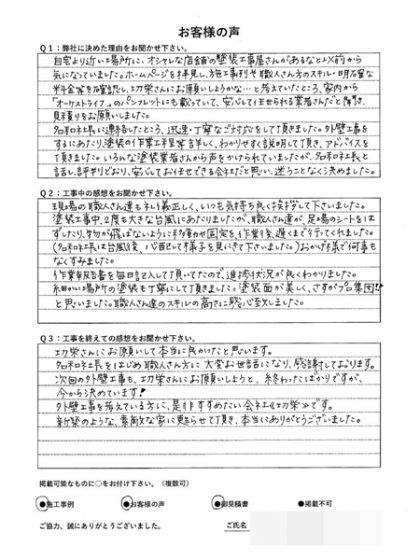 お客様の声
Q１：弊社に決めた理由をお聞かせ下さい。
自宅より近い場所に、オシャレな店舗の塗装工事屋さんがあるなと以前から
気になっていました。ホームページを拝見し、施工事例や職人さん方のスキル・明石確な
料金体系を確認し、工事さんにお願いしようかな…と考えていたところ、家内から
「オーケストライフ」のパンフレットにも載っていて、安心して任せられる業者さんだと聞き、
見積りをお願いしました。
社長に連絡したところ、迅速・丁寧なご対応をして頂きました。外壁工事を
するにあたり、塗装の作業工程等詳しく、わかりやすく説明して頂き、アドバイスを
頂きました。いろんな塗装業者さんから声をかけられていましたが、社長と
話をし、評判どおり、安心してお任せできる会社だと思い、迷うことなく決めました。
Q２：工事中の感想をお聞かせ下さい。
現場の職人さん達も礼儀正しく、いつも気持ち良く挨拶して下さいました。
塗装工事中、2度も大きな台風にあたりましたが、職人さん達が、足場のシートをは
ずしたり、物が飛ばないように移動や固定を作業後、遅くまで行ってくれました。
社長は台風後、心配して様子を見にきて下さいました)おかげ様で何事も
なくすみました。
作業報告書を毎日記入して頂いてたので、進捗状況が良くわかりました。
細かい場所の塗装も丁寧にして頂きました。塗装面が美しく、さすがプロ集団!!
と思いました。職人さん達のスキルの高さに感心致しました。
Q３：工事を終えての感想をお聞かせ下さい。
栄さんにお願いして本当に良かったと思います。
社長をはじめ職人さん方に大変お世話になり、感謝しております。
次回の外壁工事も、栄さんにお願いしようと、終わったばかりですが、
今から決めています!
外壁工事を考えている方に、是非すすめたい会社≪栄≫です。
新築のような、素敵な家に甦らせて頂き、本当にありがとうございました。
掲載可能なものに○をお付け下さい。（複数可）
●施工事例 ●お客様の声 ●御見積書 ●掲載不可
ご協力、誠にありがとうございました。 ご氏名